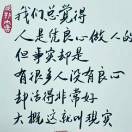 我们总觉得
人是凭良心做人的
但事实却是
有很多人没有良心
却活得非常好
大概这就叫现实